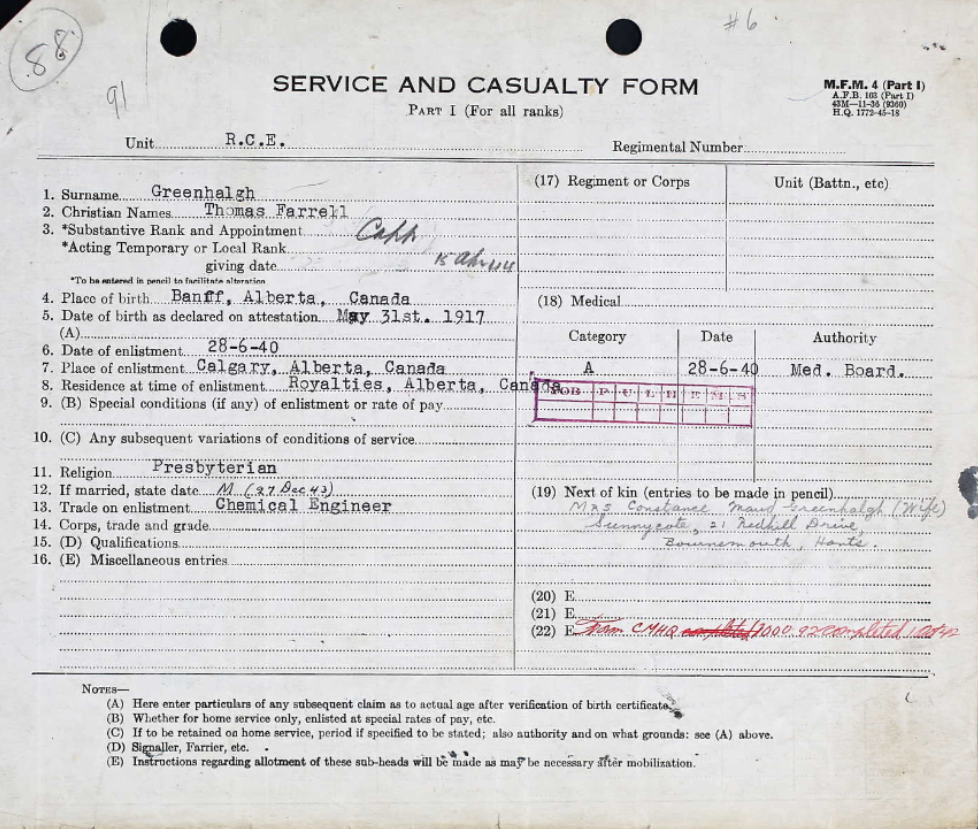 88
# 6
91
SERVICE AND CASUALTY FORM
PART I (For all ranks)
M.F.M. 4 (Part I)
A.F.B. 103 (Part I)
43M—11-36 (9360)
H.Q. 1772-45-18
Unit R.C.E.
Regimental Number
1. Surname Greenhalgh
2. Christian Names Thomas Farrell
3. *Substantive Rank and Appointment Capt
*Acting Temporary or Local Rank
giving date 15 Apr 44
*To be entered in pencil to facilitate alteration
4. Place of birth Banff, Alberta, Canada
5. Date of birth as declared on attestation May 31st. 1917
(A)
6. Date of enlistment 28-6-40
7. Place of enlistment Calgary, Alberta, Canada
8. Residence at time of enlistment Royalties, Alberta, Canada
9. (B) Special conditions (if any) of enlistment or rate of pay
10. (C) Any subsequent variations of conditions of service
11. Religion Presbyterian
12. If married, state date M (27 Dec 43)
13. Trade on enlistment Chemical Engineer
14. Corps, trade and grade
15. (D) Qualifications
16. (E) Miscellaneous entries
(17) Regiment or Corps Unit (Battn., etc)
(18) Medical
Category Date Authority
A 28-6-40 Med. Board.
FOB P U L H E M S
(19) Next of kin (entries to be made in pencil)
Mrs Constance Maud Greenhalgh (Wife)
Sunnycote, 21 Redhill Drive,
Bournemouth, Hants.
(20) E
(21) E
(22) E Form CMHQ completed 1000.92 completed 1 Oct 42
NOTES—
(A) Here enter particulars of any subsequent claim as to actual age after verification of birth certificate
(B) Whether for home service only, enlisted at special rates of pay, etc.
(C) If to be retained on home service, period if specified to be stated; also authority and on what grounds: see (A) above.
(D) Signaller, Farrier, etc.
(E) Instructions regarding allotment of these sub-heads will be made as may be necessary after mobilization.